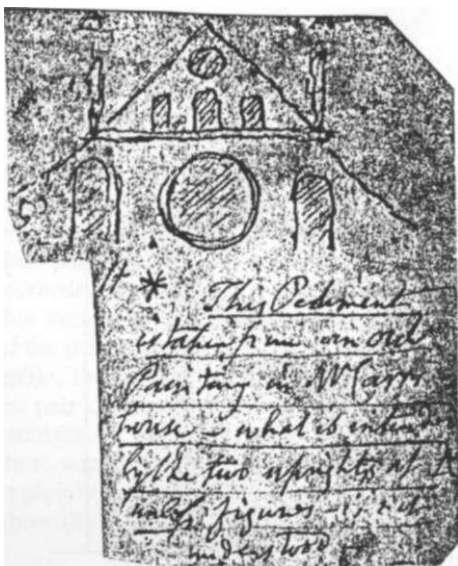 This Pediment
is taken from an old
Painting in Mr Carrs
house - what is intend
by the two uprights at
figures - is not
understood